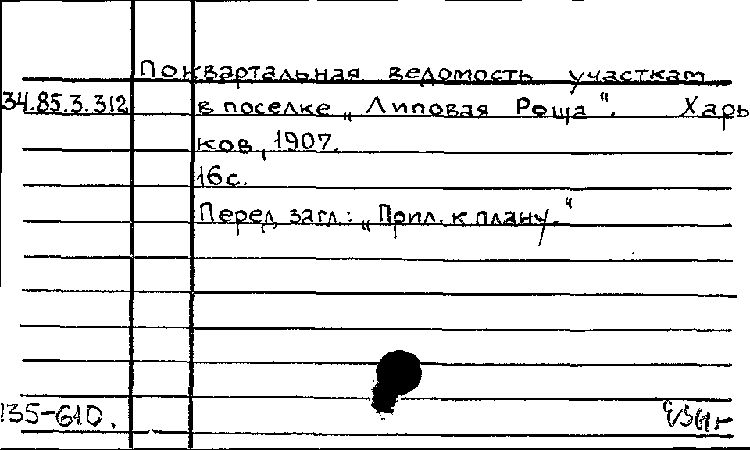 Поквартальная ведомость участкам
34.85.3.312 в поселке „Липовая Роща“. Харь
ков, 1907.
16с.
Перед загл.: „Прил. к плану.“
135-610.